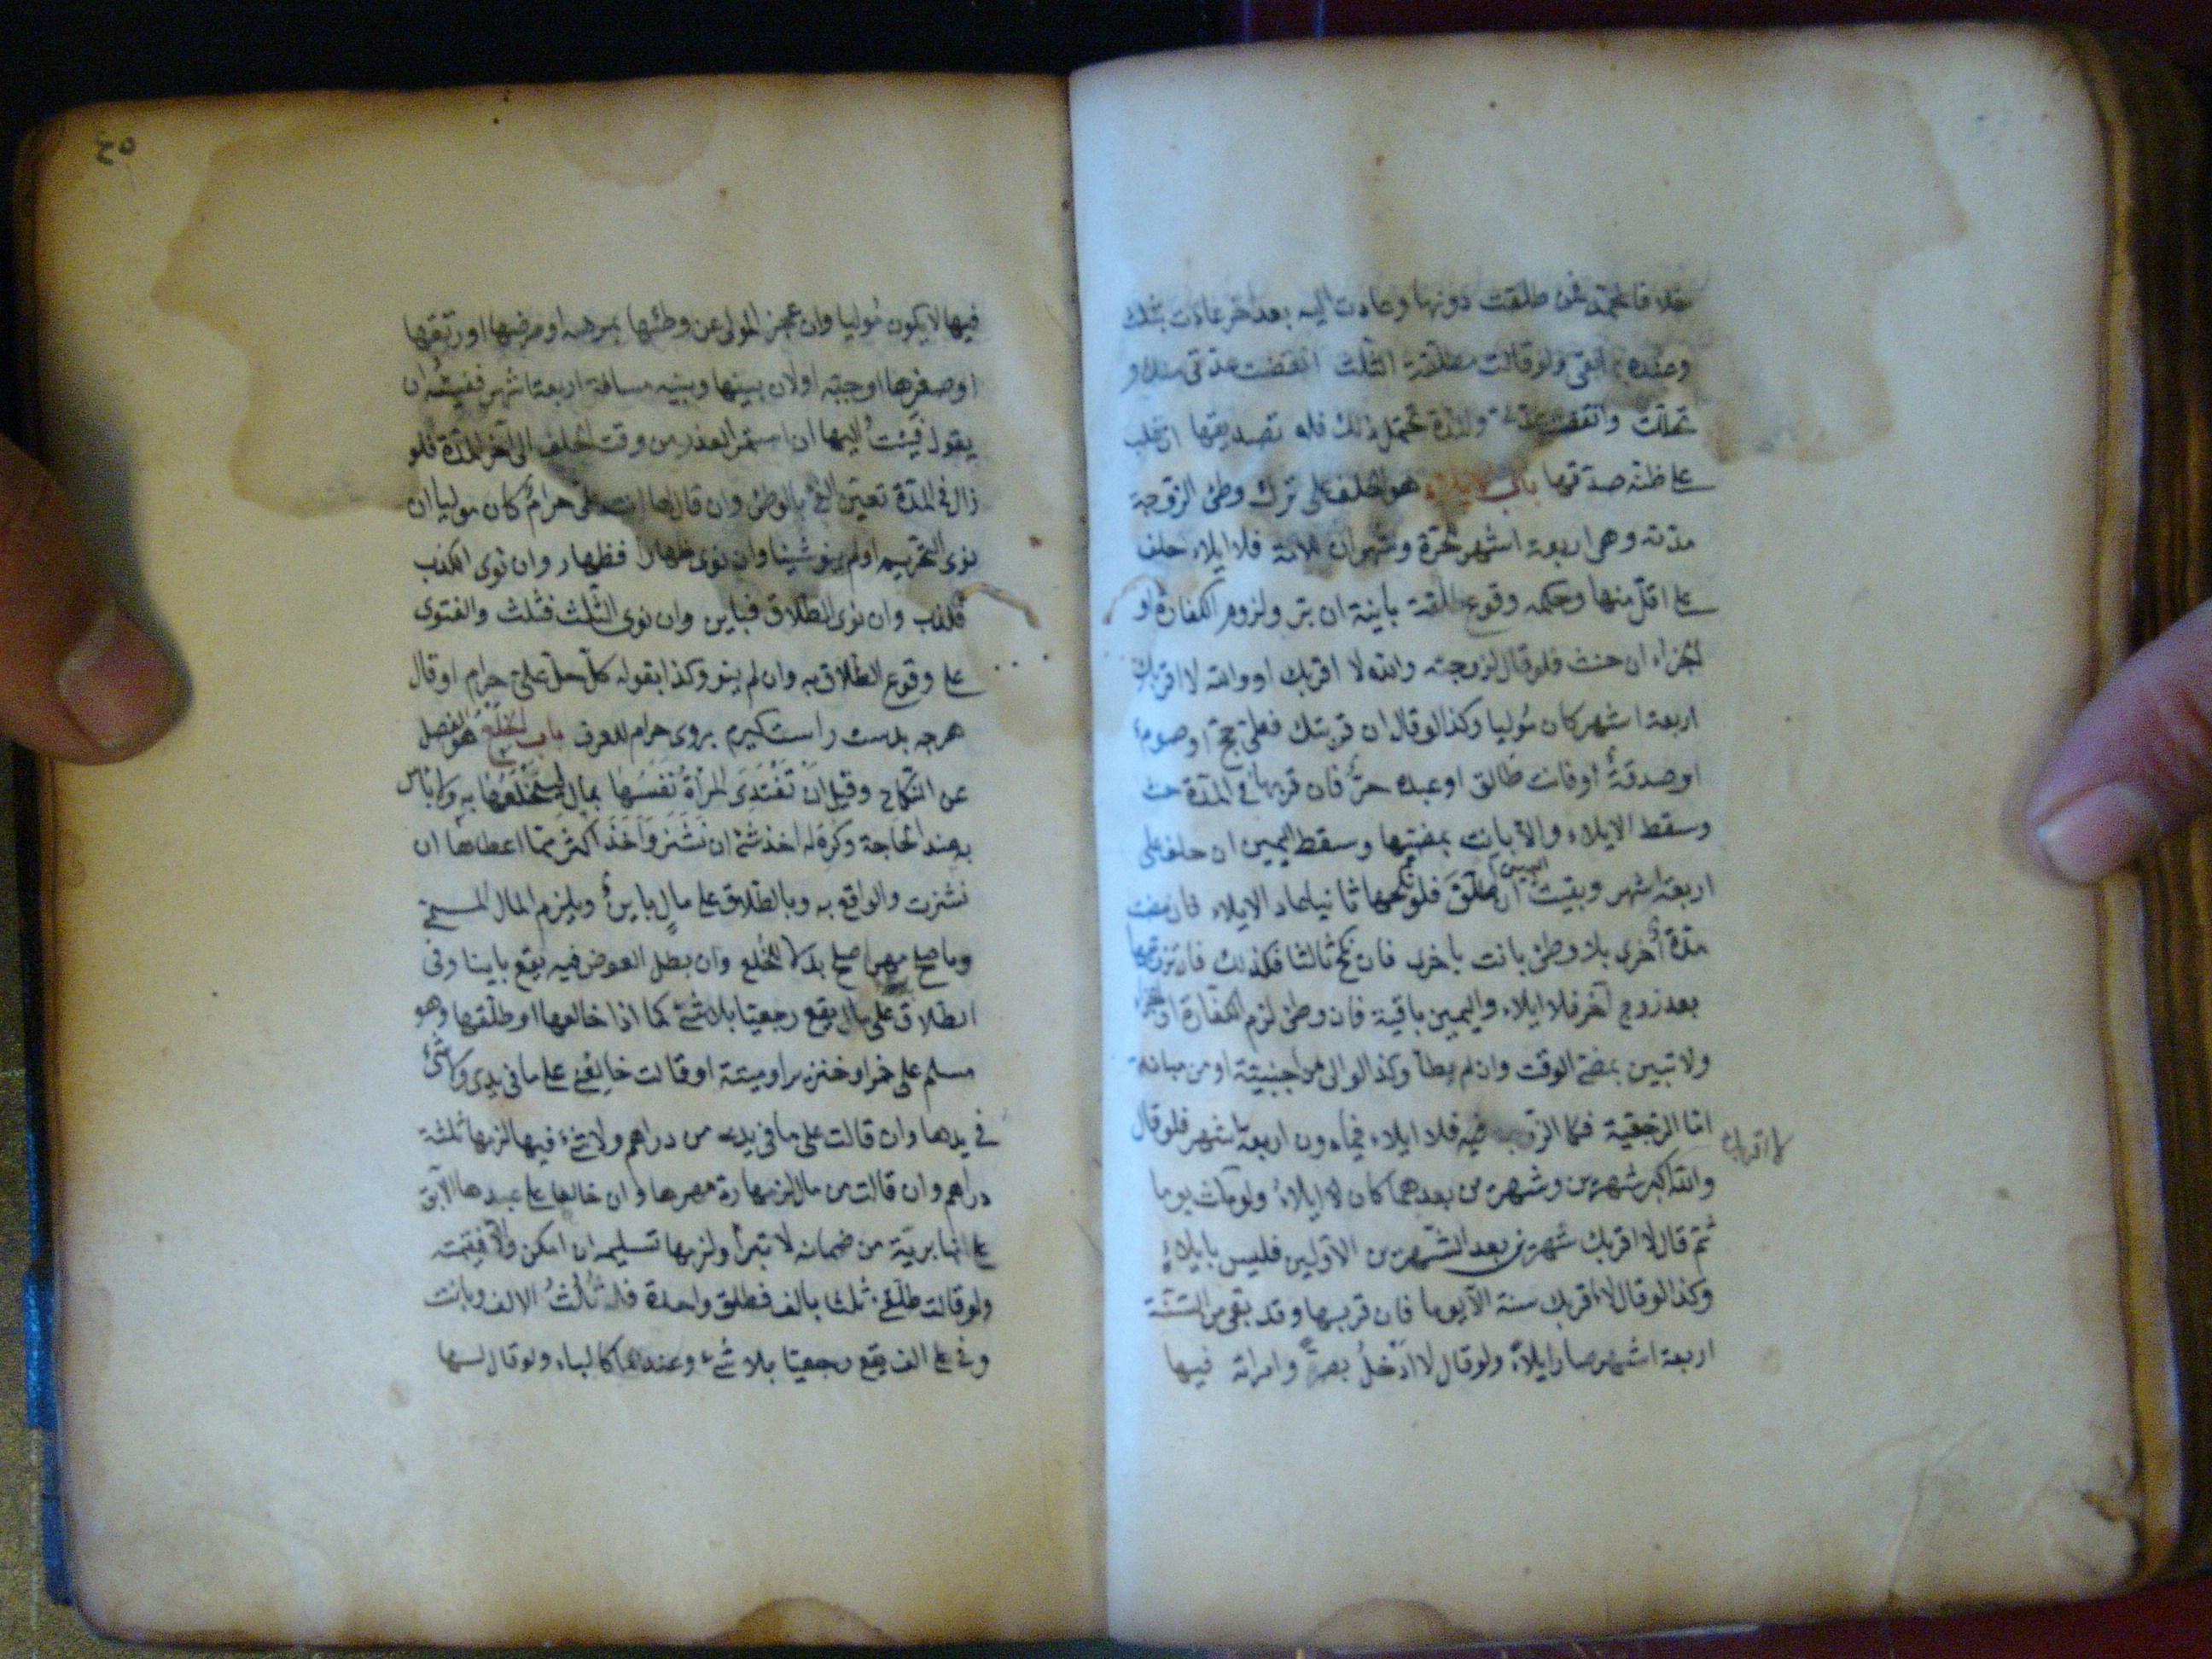 خلافا لمحمد فمن طلقت دونها وعادت اليه بعد آخر عادت بثلث
وعنده بما بقى ولو قالت مطلقة الثلث انقضت عدتى منك و
تحللت وانقضت عدته والمدة تحتمل ذلك فله تصديقها ان غلب
على ظنه صدقها باب الايلاء هو الحلف على ترك وطئ الزوجة
مدته وهى اربعة اشهر للحرة وشهران للامة فلا ايلاء حلف
على اقل منها وحكمه وقوع طلقة باينة ان بر ولزوم الكفارة او
الجزاء ان حنث فلو قال لزوجته والله لا اقربك او والله لا اقربك
اربعة اشهر كان موليا وكذا لو قال ان قربتك فعلى حج او صوم
او صدقة او فانت طالق او عبده حر فان قربها فى المدة حنث
وسقط الايلاء والا بانت بمضيها وسقط اليمين ان حلف على
اربعة اشهر وبقيت اليمين ان اطلق فلو نكحها ثانيا عاد الايلاء فان مضت
مدة اخرى بلا وطئ بانت باخرى فان نكح ثالثا فكذلك فان تزوجها
بعد زوج آخر فلا ايلاء واليمين باقية فان وطئ لزم الكفارة او الجزاء
ولا تبين بمضى الوقت وان لم يطأ وكذا لو آلى من اجنبية او من مبانة
اما الرجعية فكالزوجة فيه فلا ايلاء فيما دون اربعة اشهر فلو قال
والله لا اقربك شهرين وشهرين بعدهما كان ايلاء ولو مكث يوما
ثم قال لا اقربك شهرين بعد الشهرين الاولين فليس بايلاء
وكذا لو قال لا اقربك سنة الا يوما فان قربها وقد بقى من السنة
اربعة اشهر صار ايلاء ولو قال لا ادخل بصرة وامراته فيها
لا اقربك
٤٥
فيها لا يكون موليا وان عجز المولى عن وطئها بمرضه او مرضها او رتقها
او صغرها او جبه او لان بينها وبينه مسافة اربعة اشهر ففيئه ان
يقول فئت اليها ان استمر العذر من وقت الحلف الى آخر المدة فلو
زال فى المدة تعين الفئ بالوطئ وان قال لها انت على حرام كان موليا ان
نوى التحريم او لم ينو شيئا وان نوى ظهارا فظهار وان نوى الكذب
فكذب وان نوى الطلاق فباين وان نوى الثلث فثلث والفتوى
على وقوع الطلاق به وان لم ينو وكذا بقوله كل حل على حرام او قال
هرجه بدست راست كيرم بروى حرام للعرف باب الخلع هو الفصل
عن النكاح وقيل ان تفتدى المرأة نفسها بمال ليخلعها به ولا باس
به عند الحاجة وكره له اخذ شئ ان نشز واخذ اكثر مما اعطاها ان
نشزت والواقع به وبالطلاق على مال باين ويلزم المال المسمى
وما صلح مهرا صلح بدلا للخلع وان بطل العوض فيه يقع باينا وفى
الطلاق على مال يقع رجعيا بلا شئ كما اذا خالعها او طلقها وهو
مسلم على خمر او خنزير او ميتة او قالت خالعنى على ما فى يدى ولا شئ
فى يدها وان قالت على ما فى يدى من دراهم ولا شئ فيها لزمها ثلثة
دراهم وان قالت من مال لزمها رد مهرها وان خالعها على عبدها الآبق
على انها برية من ضمانه لا تبرأ ولزمها تسليمه ان امكن والا فقيمته
ولو قالت طلقنى ثلثا بالف فطلق واحدة فله ثلث الالف وبانت
وفى على الف يقع رجعيا بلا شئ وعندهما كالباء ولو قال لها